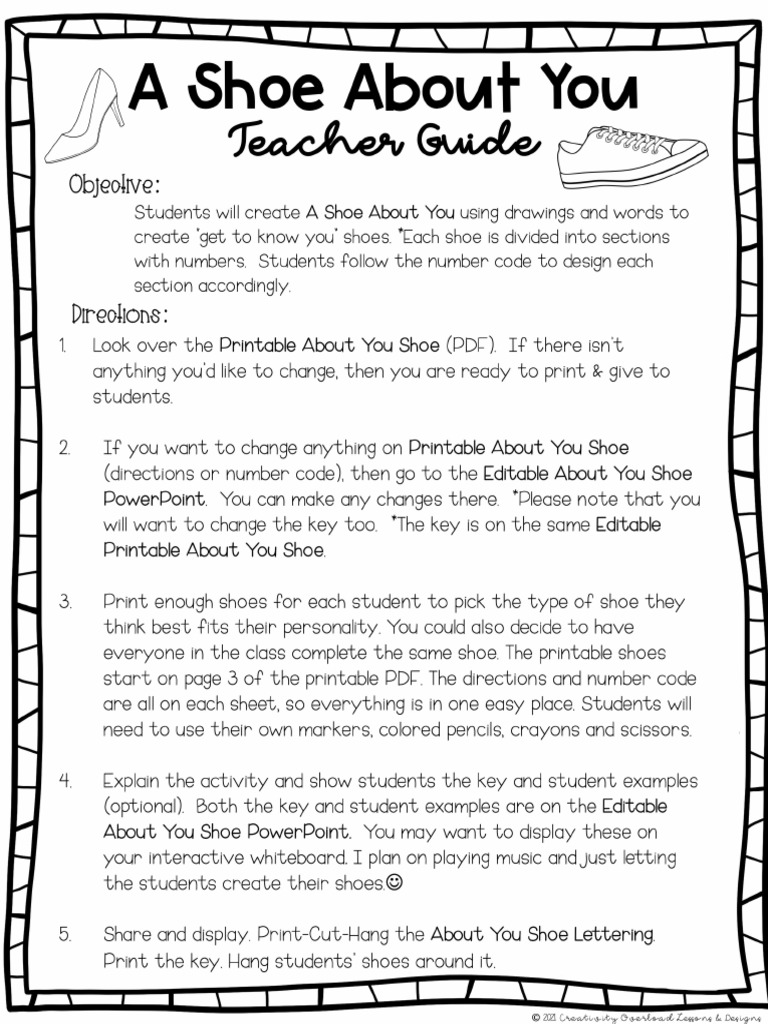 A Shoe About You
Teacher Guide
Objective:
Students will create A Shoe About You using drawings and words to
create "get to know you" shoes. *Each shoe is divided into sections
with numbers. Students follow the number code to design each
section accordingly.
Directions:
1. Look over the Printable About You Shoe (PDF). If there isn't
anything you'd like to change, then you are ready to print & give to
students.
2. If you want to change anything on Printable About You Shoe
(directions or number code), then go to the Editable About You Shoe
PowerPoint. You can make any changes there. *Please note that you
will want to change the key too. *The key is on the same Editable
Printable About You Shoe.
3. Print enough shoes for each student to pick the type of shoe they
think best fits their personality. You could also decide to have
everyone in the class complete the same shoe. The printable shoes
start on page 3 of the printable PDF. The directions and number code
are all on each sheet, so everything is in one easy place. Students will
need to use their own markers, colored pencils, crayons and scissors.
4. Explain the activity and show students the key and student examples
(optional). Both the key and student examples are on the Editable
About You Shoe PowerPoint. You may want to display these on
your interactive whiteboard. I plan on playing music and just letting
the students create their shoes.☺
5. Share and display. Print-Cut-Hang the About You Shoe Lettering.
Print the key. Hang students' shoes around it.
© 2021 Creativity Overload Lessons & Designs